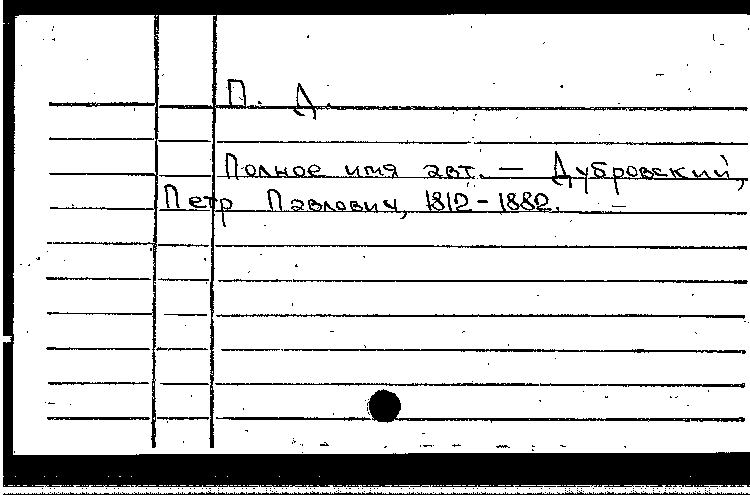 П. Д.
Полное имя авт. — Дубровский,
Петр Павлович, 1812-1882.